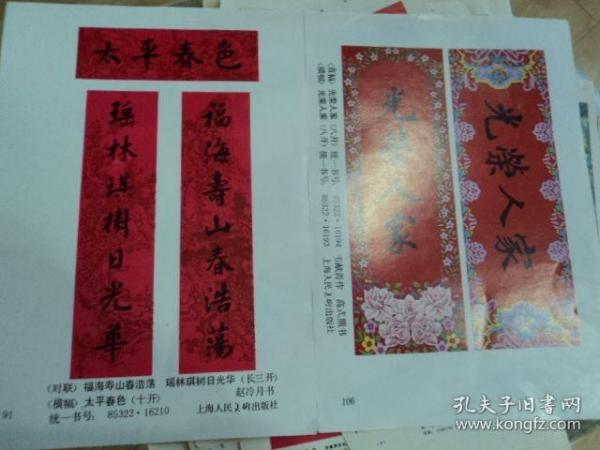 太平春色
福海壽山春浩蕩
瑶林琪樹日光華
(对联) 福海寿山春浩荡 瑶林琪树日光华 (长三开)
(横幅) 太平春色 (十开) 赵冷月书
统一书号: 85322·16210 上海人民美術出版社
91
光榮人家
光榮人家
(直幅) 光荣人家 (八开) 统一书号: 85322·16194
(横幅) 光荣人家 (八开) 统一书号: 85322·16193 上海人民美術出版社
高式熊书
106
孔夫子旧书网
www.kongfz.com